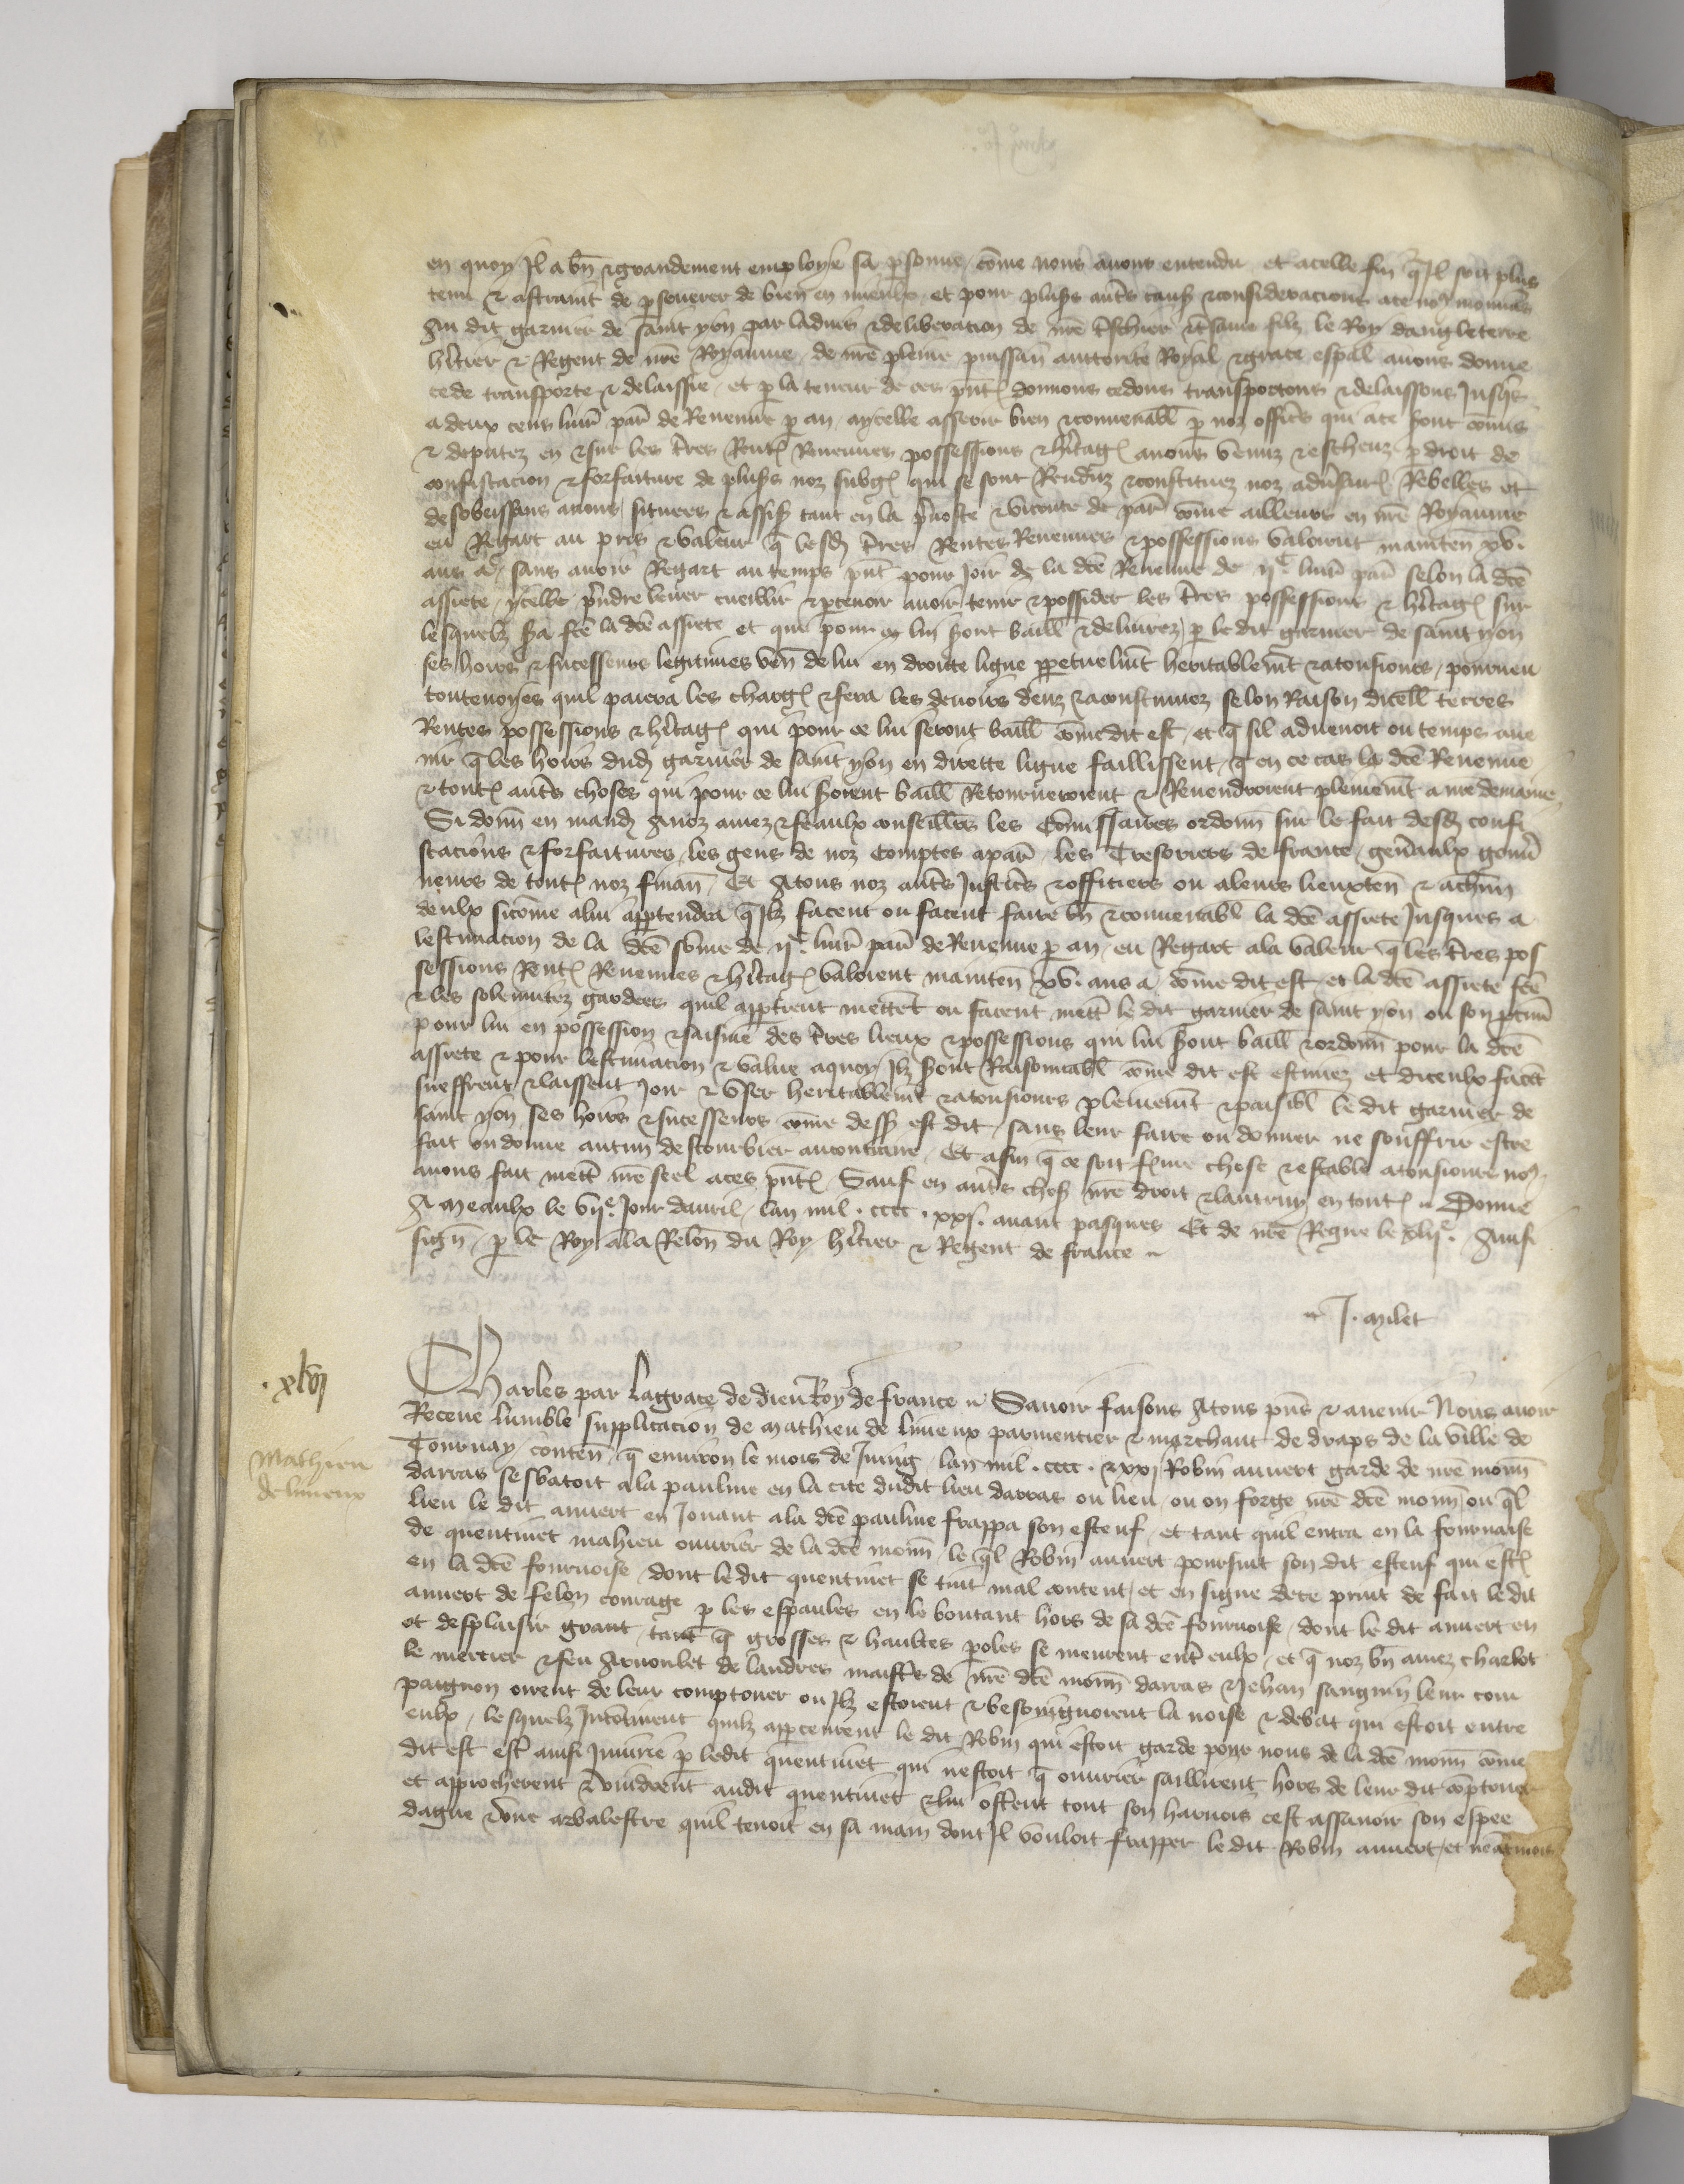 en quoy Il a bn̄ & grandement employe sa p̱sonne / cōme nous auons entendu et acelle fin q̄ Il soit plus
tenu & astraint de p̱seuerer de bien en mieulx / et pour plus̄s aut̄s caus̄ & consideracions ace no9 mouuās
Au dit garnier de saint yon par laduis & deliberation de nr̄e t̄schier & t̄same filz le Roy dangleterre
hīttier & Regent de nr̄e Royaume / de nr̄e pleine puissan̄ auttorite Royal & grace esp̄al auons donne
cede transporte & delaissie / et p̱ la teneur de ces pn̄t̄ donnons cedons transportons & delaissons Jusq̄s
a deux cens liur̄ par̄ de Reuenue p̱ an / aycelle asseoir bien & conuenabl̄ p̱ noz offic̄s qui ace sont cōmis
& deputez en & sur les t̄res Rent̄ Reuenues possessions & hīt̄aḡ anous venuz & escheuz p̱ droit de
confiscacion & forfaiture de plus̄s noz subḡ qui se sont Renduz & constituez noz adūsair̄ Rebelles et
desobeissans anous / situees & assis̄ tant en la p̄uoste & viconte de par̄ cōme ailleurs en nr̄e Royaume
eu Regart au pris & valeur q̄ lesd̄ t̄res Rentes Reuenues & possessions valoient mainten̄ xv.
ans a / sans auoir Regart au temps pn̄t pour joir de la dc̄e Reuenue de ijc liur̄ par̄ selon la dc̄e
assiete / ycelle p̄ndre leuer cueillir & p̱ceuoir auoir tenir & possider les t̄res possessions & hīt̄aḡ sur
lesquelz s̄a fc̄e la dc̄e assiete et qui pour ce lui s̄ont baill̄ & deliurez / p̱ le dit garnier de saint yon
ses hoirs & successeurs legitimes ven̄ de lui en droitte ligne p̱petuelm̄t heritablem̄t & atousiours / pourueu
toutenoyes quil paiera les charḡ & fera les deuoirs deuz & acoustumez selon Raison dicell̄ terres
Rentes possessions & hīt̄aḡ qui pour ce lui seront baill̄ cōme dit est / et q̄ sil aduenoit ou temps aue
nir q̄ les hoirs dud̄ garnier de saint yon en dirette ligne faillissent / q̄ en ce cas la dc̄e Reuenue
& tout̄ aut̄s choses qui pour ce lui s̄oient baill̄ Retourneroient & Reuendroient plenem̄t a nr̄e demaine
Si donn̄ en mand̄ Anoz amez & feaulx conseill̄rs les Cōmissaires ordonn̄ sur le fait desd̄ confi
scacions & forfaitures / les gens de noz comptes apar̄ / les Tresoriers de france / gen̄aulx gouu̇
neurs de tout̄ noz finan̄ / Et Atous noz aut̄s Justic̄s & officiers ou aleurs lieuxten̄ & ach̄un
deulx sicōme alui app̱tendra q̄ Ilz facent ou facent faire bn̄ & conuenabl̄ la dc̄e assiete Jusques a
lestimacion de la dc̄e sōme de ijc. liur̄ par̄ de Reuenue p̱ an / eu Regart ala valeur q̄ les t̄res pos
sessions Rent̄ Reuenues & hīt̄aḡ valoient mainten̄ xv. ans a cōme dit est / et la dc̄e assiete fc̄e
& les solemnitez gardees quil app̱tient mettēt ou facent mett̄ le dit garnier de saint yon ou son p̱cur̄
pour lui en possession & saisine des t̄res lieux & possessions qui lui s̄ont baill̄ & ordonn̄ pour la dc̄e
assiete & pour lestimacion & value aquoy Ilz s̄ont Raisonnabl̄ cōme dit est estimez et diceulx facēt
sueffrent & laissent Joir & vser heritablem̄t & atousiours plenem̄t & paisibl̄ le dit garnier de
saint yon ses hoirs & successeurs cōme dess̄ est dit / sans leur faire ou donner ne souffrir estre
fait ou donne aucun destourbier aucontraire / Et afin q̄ ce soit f̱me chose & estable atousiours no9
auons fait mett̄ nr̄e seel aces pn̄t̄ / Sauf en aut̄s chos̄ nr̄e droit & lautruy en tout̄ ~ Donne
A Meaulx le vije. Jour dauril / lan mil . cccc . xxj. auant pasques Et de nr̄e Regne le xlije. Ainsi
sign̄ / p̱ le Roy ala Relon̄ du Roy hīttier & Regent de france ~
~ J. milet
. xlvj
Charles par la grace de dieu Roy de france ~ Sauoir faisons Atous pn̄s & auenir Nous auoir
Receue lumble supplicacion de Mathieu de limeux parmentier & marchant de draps de la ville de
Mathieu
de limeux
Tournay / conten̄ / q̄ enuiron le mois de Juing lan mil . cccc . & xxj Robin anuert garde de nr̄e monn̄
darras sesbatoit ala paulme en la cite dudit lieu darras ou lieu / ou on forge nr̄e dc̄e monn̄ / ou q̄l
lieu le dit anuert en Jouant ala dc̄e paulme frappa son esteuf / et tant quil entra en la fournaise
de quentinet mahieu ouurier de la dc̄e monn̄ / le q̄l Robin anuert poursuit son dit esteuf qui est̄
en la dc̄e fournoise / dont ledit quentinet se tint mal content / et en signe dece print de fait ledit
anuert de felon courage p̱ les espaules en le boutant hors de sa dc̄e fournoise / dont le dit anuert en
et desplaisir grant / tant q̄ grosses & haultes p̱oles se meurent ent̄ eulx / et q̄ noz bn̄ amez charlot
le mercier & feu Arnoulet de landres maist̄s de nr̄e dc̄e monn̄ darras & Jehan sanguin leur com
paignon oirent de leur comptouer ou Ilz estoient & besoingnoient la noise & debat qui estoit entre
eulx / lesquelz Incōtinent quilz app̱ceurent le dit Robin qui estoit garde pour nous de la dc̄e monn̄ cōme
dit est est̄ ainsi Iniurie p̱ ledit quentinet qui nestoit q̄ ouurier saillirent hors de leur dit cōptouer
et approcherent & vindrent audit quentinet & lui osterent tout son harnois cest assauoir son espee
dague & vne arbalestre quil tenoit en sa main dont Il vouloit frapper le dit Robin anuert / et neātmois